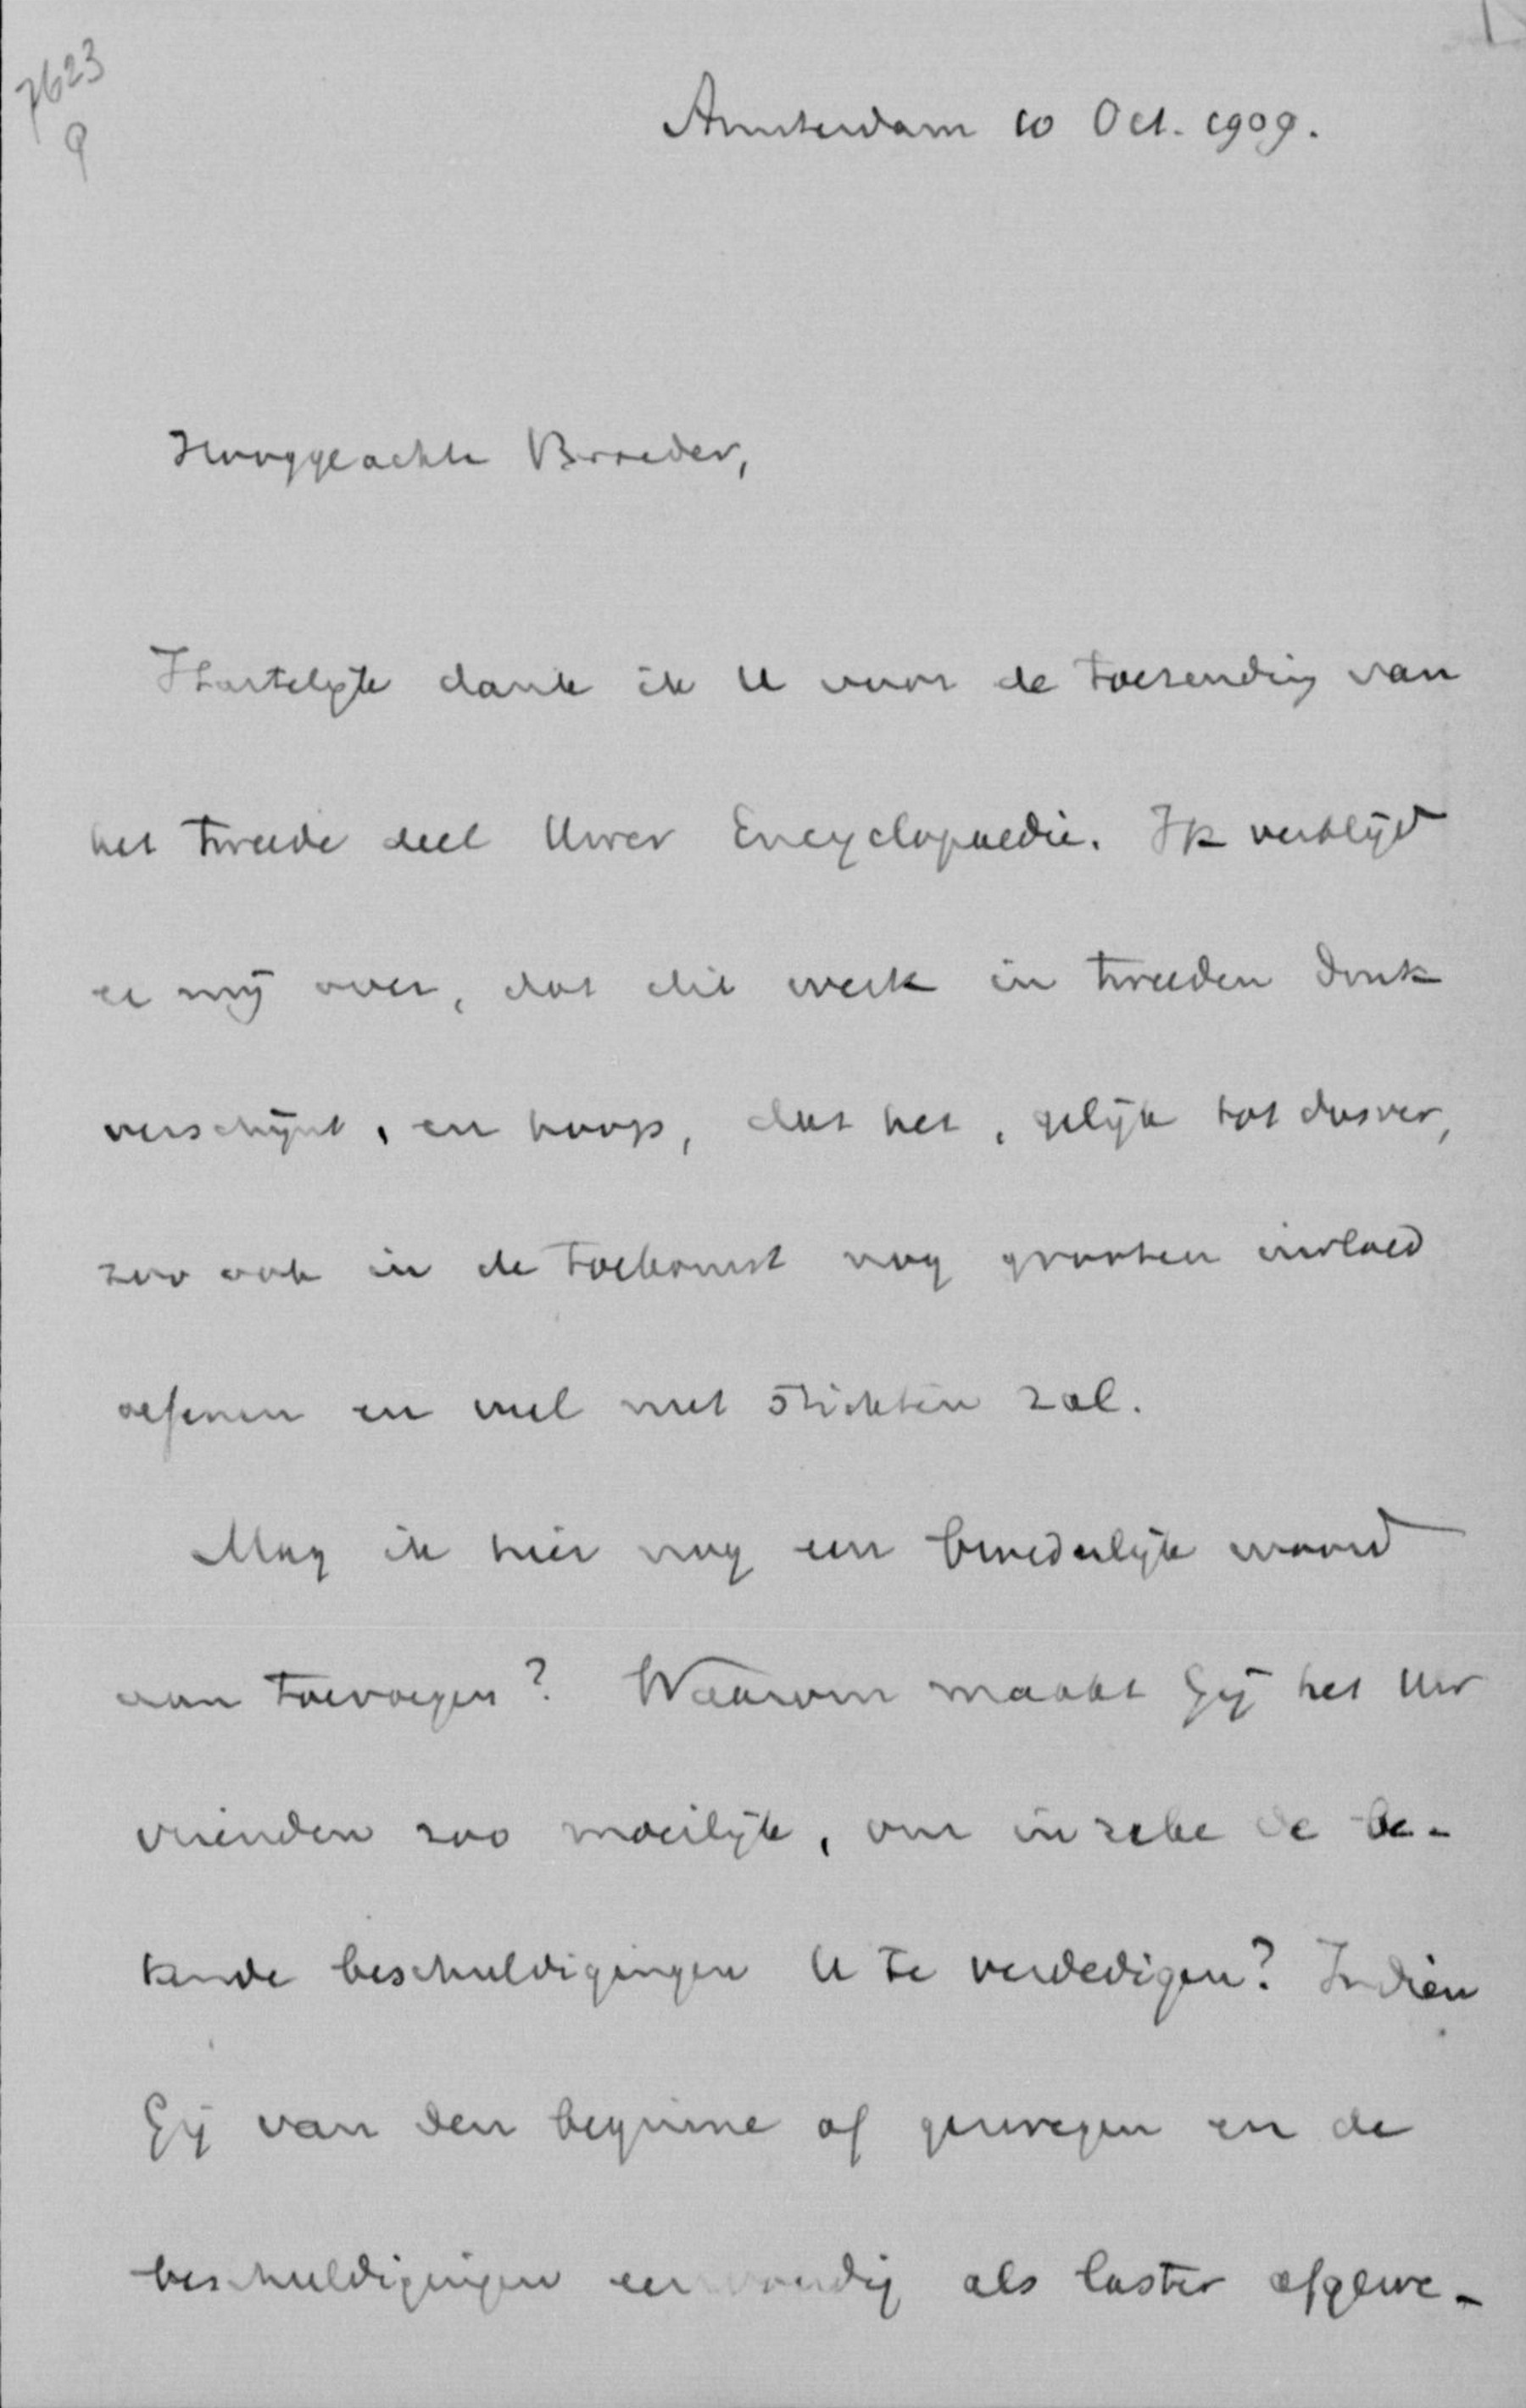 7623
9
Amsterdam 10 Oct. 1909.
Hooggeachte Broeder,
Hartelijk dank ik U voor de toezending van
het tweede deel Uwer Encyclopaedie. Ik verblijd
er mij over, dat dit werk in tweeden druk
verschijnt, en hoop, dat het, gelijk tot dusver,
zoo ook in de toekomst nog grooten invloed
oefenen en veel nut stichten zal.
Mag ik hier nog een broederlijk woord
aan toevoegen? Waarom maakt Gij het Uw
vrienden zoo moeilijk, om inzake de be-
kende beschuldigingen U te verdedigen? Indien
Gij van den beginne af gezwegen en de
beschuldigingen eenvoudig als laster afgewe-